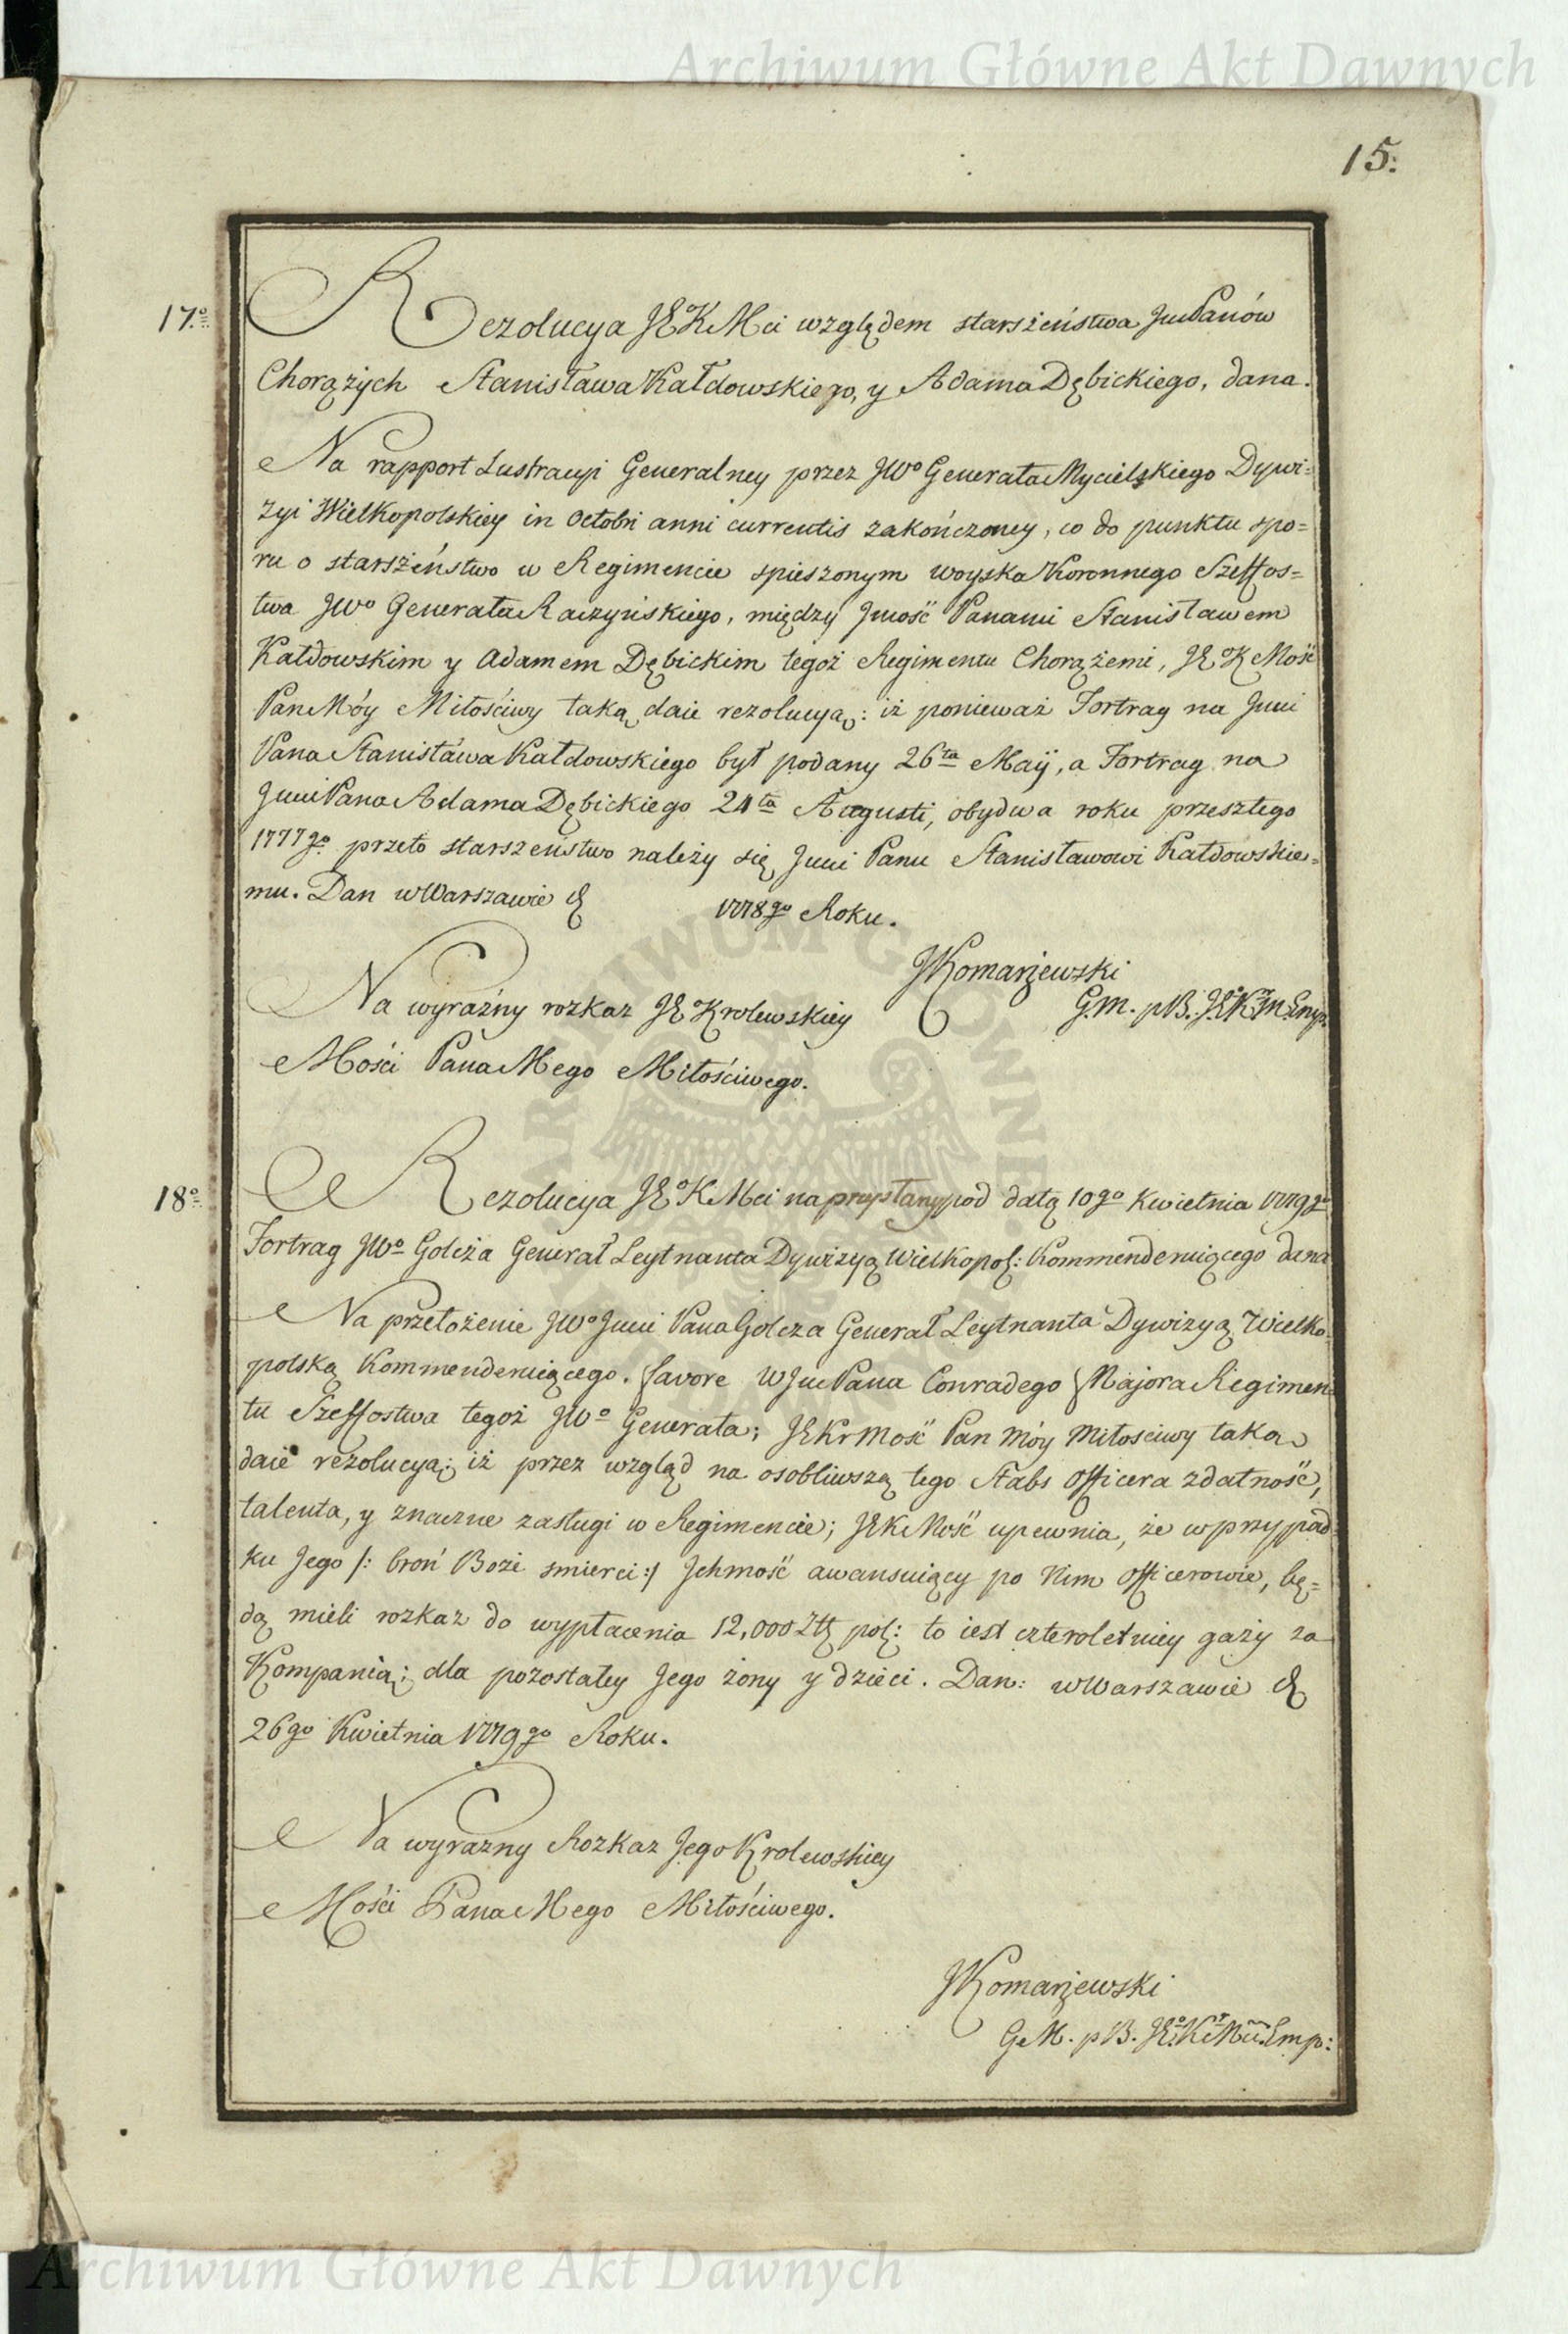 Archiwum Główne Akt Dawnych
15.
17º
Rezolucya JEºKMci względem starszeństwa JmPanów
Chorążych Stanisława Kałdowskiego, y Adama Dębickiego, dana.
Na rapport Lustracyi Generalney przez JWº Generała Mycielskiego Dywi=
zyi Wielkopolskiey in Octobri anni currentis zakończoney, co do punktu spo=
ru o starszeństwo w Regimencie spieszonym woyska Koronnego Szeffos=
twa JWº Generała Raczyńskiego, między Jmość Panami Stanisławem
Kałdowskim y Adamem Dębickim tegoż Regimentu Chorążemi, JEºKMość
Pan Móy Miłościwy taką daie rezolucyą: iż ponieważ Fortrag na Jmci
Pana Stanisława Kałdowskiego był podany 26ta Maÿ, a Fortrag na
Jmci Pana Adama Dębickiego 24ta Augusti, obydwa roku przeszłego
1777go przeto starszeństwo należy się Jmci Panu Stanisławowi Kałdowskie=
mu. Dan w Warszawie d 1778go Roku.
JKomarzewski
Na wyraźny rozkaz JEº Krolewskiey
G.M. pB. JEºKrM Emp.
Mości Pana Mego Miłościwego.
18º
Rezolucya JEºKMci na przysłany pod datą 10go Kwietnia 1779go
Fortrag JWº Golcza Generał Leytnanta Dywizyą Wielkopol: Kommenderuiącego dana
Na przełożenie JWº Jmci Pana Golcza Generał Leytnanta Dywizyą Wielko=
polską Kommenderuiącego. favore WJmPana Conradego Majora Regimen=
tu Szeffostwa tegoż JWº Generała; JEKrMość Pan Móy Miłosciwy taką
daie rezolucyą; iż przez wzgląd na osobliwszą tego Stabs Officera zdatność,
talenta, y znaczne zasługi w Regimencie; JEKMość upewnia, że w przypad=
ku Jego /: broń Boże smierci :/ Jchmość awansuiący po Nim Officerowie, bę=
dą mieli rozkaz do wypłacenia 12,000 Złł pol: to iest czteroletniey gaży za
Kompanią; dla pozostałey Jego żony y dzieci. Dan: w Warszawie d
26go Kwietnia 1779go Roku.
Na wyrazny Rozkaz Jego Krolewskiey
Mości Pana Mego Miłościwego.
JKomarzewski
G.M. pB. JEºKrMci Emp:
Archiwum Główne Akt Dawnych